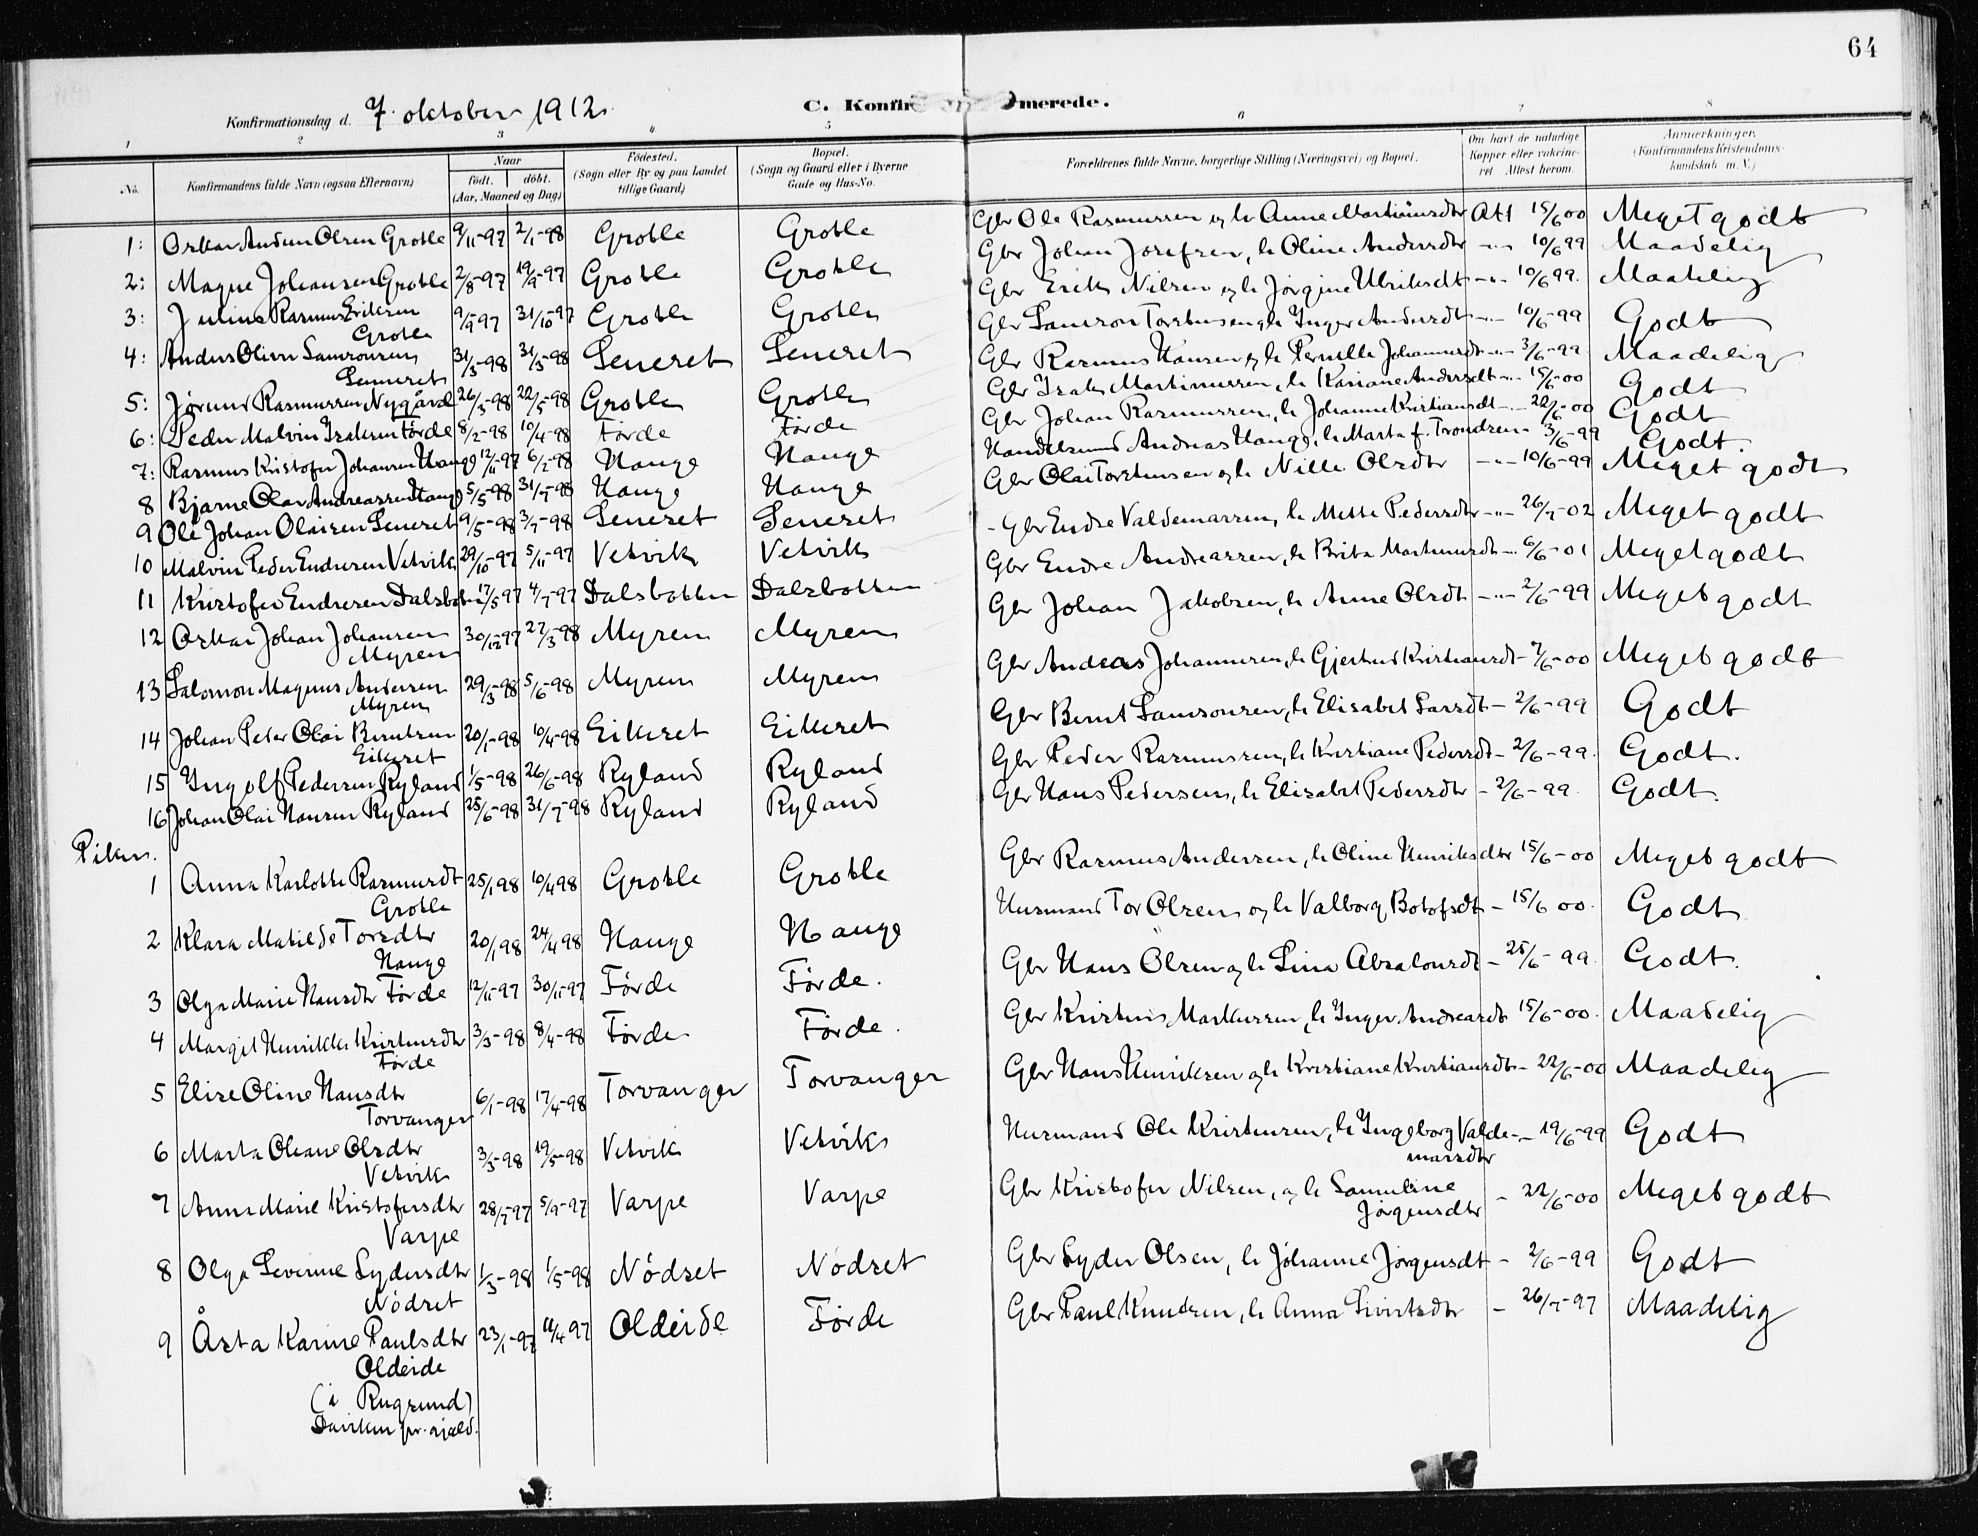 64
Konfirmationsdag d. 7 oktober 1912. C. Konfirmerede.
1 2 3 4 5 6 7 8
No. Konfirmandens fulde Navn (ogsaa Efternavn) Naar født. døbt. (Aar, Maaned og Dag) Fødested. (Sogn eller By og paa Landet tillige Gaard) Bopæl. (Sogn og Gaard eller i Byerne Gade og Hus-No. Forældrenes fulde Navne, borgerlige Stilling (Næringsvei) og Bopæl. Om havt de naturlige Kopper eller vaccineret. Attest herom. Anmærkninger. (Konfirmandens Kristendomskundskab m. V.)
1: Oskar Anders Olsen Grotle 9/11-97 2/1-98 Grotle Grotle Gbr Ole Rasmussen og h Anne Martinusdtr Att 15/6 00 Meget godt
2: Magne Johansen Grotle 2/8-97 19/9-97 Grotle Grotle Gbr Johan Josefsen, h Oline Andersdtr -"- 10/6 99 Maadelig
3: Julius Rasmus Eriksen Grotle 9/9-97 31/10-97 Grotle Grotle Gbr Erik Nilsen og h Jørgine Ulriksdt -"- 10/6 99. Maadelig
4: Anders Oliver Samsonsen Seneset 31/3-98 31/5-98 Seneset Seneset Gbr Samson Torstensen og h Inger Andersdt -"- 10/6-99 Godt
5: Jørund Rasmussen Nygård 26/3-98 22/5-98 Grotle Grotle Gbr Rasmus Hansen og h Pernille Johannesdt -"- 3/6-99 Maadelig
6: Peder Malvin Isaksen Førde 8/2-98 10/4-98 Førde Førde Gbr Isak Martinussen, h Kariane Andersdt -"- 15/6-00 Godt
7: Rasmus Kristofer Johansen Hauge 12/11-97 6/2-98 Hauge Hauge Gbr Johan Rasmussen, h Johanne Kristiansdt - 22/6-00 Godt
8 Bjarne Olav Andreassen Hauge 5/5-98 31/7-98 Hauge Hauge Handelsmand Andreas Hauge, h Marta f. Trondsen - 3/6-99 Godt.
9 Ole Johan Olaisen Seneset 9/5-98 3/7-98 Seneset Seneset Gbr Olai Torstensen og h Nille Olsdtr -"- 10/6-99 Meget godt
10 Malvin Peder Endresen Vetvik 29/10-97 5/11-97 Vetvik Vetvik - Gbr Endre Valdemarsen, h Mette Pedersdtr -"- 26/7-02 Meget godt
11 Kristofer Endresen Dalsbotten 17/5-97 4/7-97 Dalsbotten Dalsbotten Gbr Endre Andreassen, h Brita Martinusdt -"- 6/6-01 Meget godt
12 Oskar Johan Johansen Myren 30/12-97 27/3-98 Myren Myren Gbr Johan Jakobsen, h Anne Olsdt -"- 2/6-99 Meget godt
13 Salomon Magnus Andersen Myren 29/3-98 5/6-98 Myren Myren Gbr Andreas Johannesen, h Gjertrud Kristiansdt - 7/6-00 Meget godt
14 Johan Peter Olai Berntsen Eikeset 20/1-98 10/4-98 Eikeset Eikeset Gbr Bernt Samsonsen, h Elisabet Larsdt - 2/6-99 Godt
15 Ingolf Pedersen Ryland 1/5-98 26/6-98 Ryland Ryland Gbr Peder Rasmussen, h Kristiane Pedersdt - 2/6-99. Godt.
16 Johan Olai Hansen Ryland 25/6-98 31/7-98 Ryland Ryland Gbr Hans Pedersen, h Elisabet Pedersdtr - 2/6-99. Godt.
Piker.
1 Anna Karlotte Rasmusdt Grotle 25/1 98 10/4 98 Grotle Grotle Gbr Rasmus Andersen, h Oline Henriksdtr 15/6-00 Meget godt
2 Klara Matilde Torsdtr Hauge 20/1 98 24/4 98 Hauge Hauge Husmand Tor Olsen og h Valborg Botofsdt - 15/6 00. Godt
3 Olga Marie Hansdtr Førde 12/11-97 30/11-97 Førde Førde. Gbr Hans Olsen og h Sina Absalonsdt - 25/6-99. Godt.
4 Margit Henrikke Kristensdtr Førde 3/3-98 8/4-98 Førde Førde. Gbr Kristen Markussen, h Inger Andreasdt 15/6-00. Maadelig
5 Elise Oline Hansdtr Torvanger 6/1-98 17/4-98 Torvanger Torvanger Gbr Hans Henriksen og h Kristiane Kristiansdtr - 22/6-00 Maadelig
6 Marta Oleane Olsdtr Vetvik 3/3-98 19/5-98 Vetvik Vetvik Husmand Ole Kristensen, h Ingeborg Valdemarsdtr - 19/6-99 Godt
7 Anne Marie Kristofersdtr Varpe 28/7-97 5/9-97 Varpe Varpe Gbr Kristofer Nilsen, og h Samuline Jørgensdtr - 22/6-00 Meget godt
8 Olga Severine Sydersdtr Nødset 1/3-98 1/5-98 Nødset Nødset Gbr Syder Olsen, h Johanne Jørgensdt - 2/6-99 Godt
9 Åsta Karine Paulsdtr Oldeide 23/1-97 11/4 97 Oldeide Førde Gbr Paul Knudsen, h Anna Sivertsdtr - 26/7-97 Maadelig
(å Rugsund)